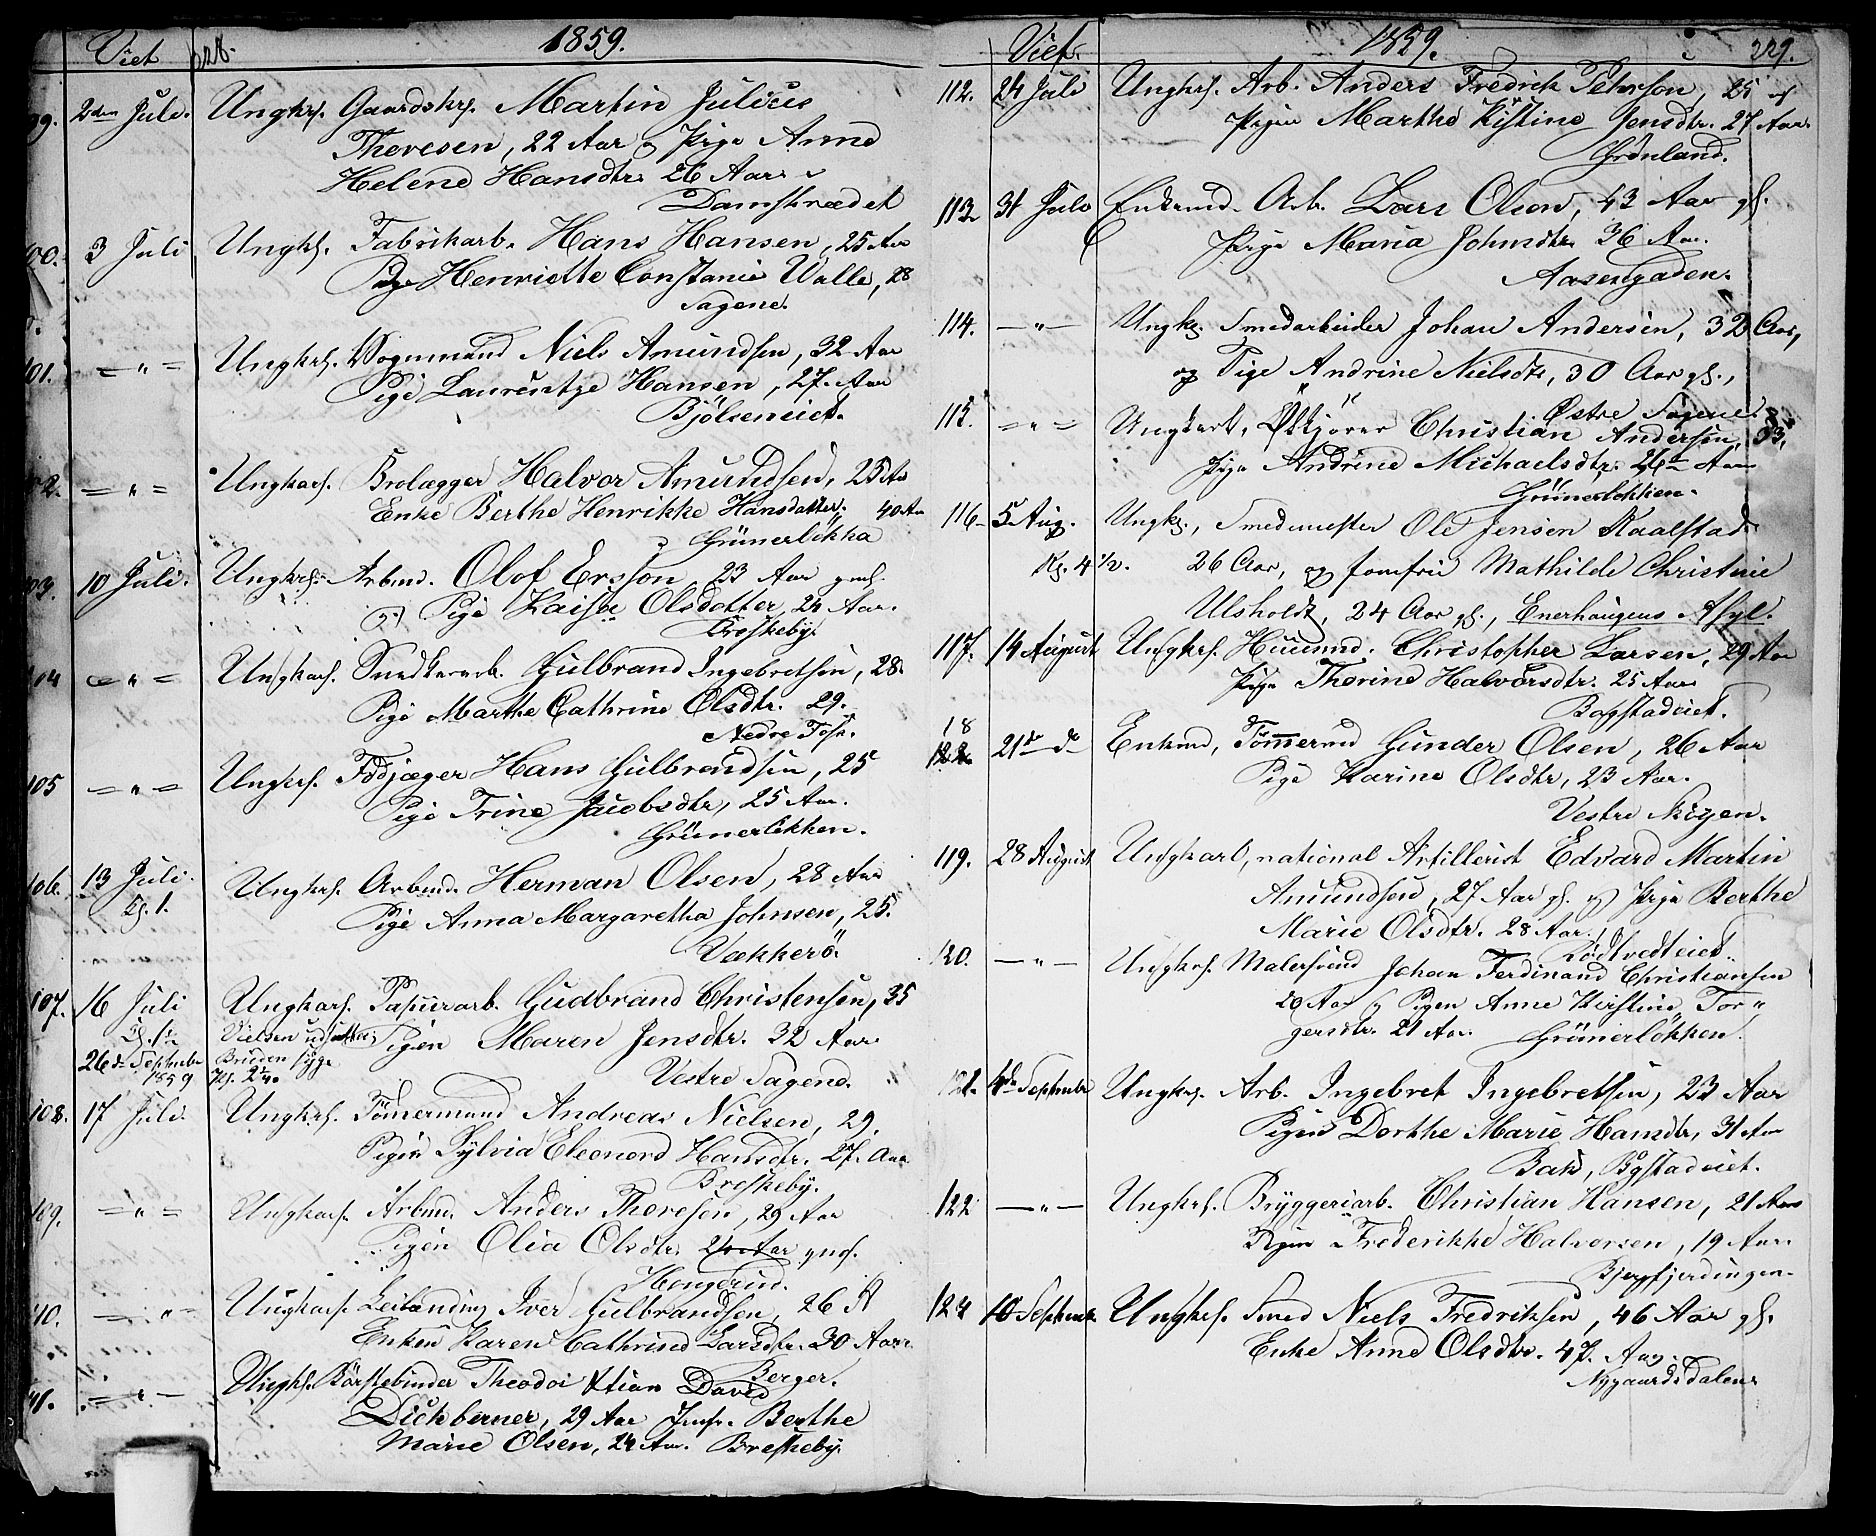 Viet 328. 1859.
99. 2den Juli. Ungkrs. Gaardskrs. Martin Julius
Theresen, 22 Aar og Pige Anne
Helene Hansdtr. 26 Aar.
Damstrædet
100. 3 Juli Ungkrs. Fabrikarb. Hans Hansen, 25 Aar
Pige Henriette Constanie Walle, 28
Sagene.
101. — " — Ungkrs. Vognmand Niels Amundsen, 32 Aar
Pige Laurentze Hansen, 27 Aar
Bjölseneiet.
102. — " — Ungkars. Brolægger Halvor Amundsen, 25 Aar
Enke Berthe Henrikke Hansdatter, 40 Aar
Grünerløkka
103. 10 Juli. Ungkrs. Arbmd. Olof Ersson 23 Aar gml.
og Pige Kaisa Olsdotter, 24 Aar.
Briskeby.
104 — " — Ungkars. Snedkerarb. Gulbrand Ingebretsen, 28.
Pige Marthe Cathrine Olsdtr. 29.
Nedre Foss.
105 — " — Ungkrs. Fodjæger Hans Gulbrandsen, 25
Pige Trine Jacobsdtr, 25 Aar.
Grünerløkken.
106. 13 Juli. Ungkrs. Arbmd. Herman Olsen, 28 Aar
Kl. 1. Pige Anna Margaretha Johnsen, 25.
Vækkerö.
107. 16 Juli Ungkars. Papiirarb. Gudbrand Christensen, 35
Vielsen udsættes; Pigen Maren Jensdtr. 32 Aar
26de September Bruden syge
1859 Kl. Vestre Sagene.
108. 17 Juli. Ungkrs. Tömmermand Andreas Nielsen, 29.
Pigen Sylvia Eleonore Hansdtr. 27. Aar
Breskeby.
109. — " — Ungkars. Arbmd. Anders Thoresen, 29 Aar
Pigen Olia Olsdtr. 24 Aar gml.
110. — " — Ungkars. Leilænding Iver Gulbrandsen, 26 A
Enken Karen Cathrine Larsdtr. 30 Aar.
Berger.
111. — " — Ungks. Börstebinder Theodor Xtian David
Dichberner, 29 Aar Jmfr. Berthe
Marie Olsen, 24 Aar. Breskeby.
Viet. 1859. 329.
112. 24 Juli Ungkrs. Arb. Anders Fredrik Pehrson, 25 og
Pigen Marthe Kistine Jensdtr. 27 Aar.
Grönland.
113. 31 Juli Enkemd. Arb. Lars Olsen, 43 Aar gl.
Pige Maria Johnsdtr. 36 Aar.
Aasengaden.
114. — " — Ungk. Smedarbeider Johan Andersen, 32 Aar,
og Pige Andrine Nielsdtr, 30 Aar gl.,
Østre Sagene.
115. — " — Ungkarl, Ølkjører Christian Andersen, 33,
Pige Andrine Michaelsdtr. 26 Aar
Grünerløkken.
116. 5 Aug. Ungk., Smedmester Ole Jensen Kaalstad
Kl. 4 1/2. 26 Aar, og Jomfrue Mathilde Christine
Ulsholdt, 24 Aar gl., Enerhaugens Asyl.
117. 14 August Ungkrs. Huusmd. Christopher Larsen, 29 Aar
Pige Thorine Halvorsdtr. 25 Aar
Bogstadeiet.
118 21de do Enkmd, Tömmermd Gunder Olsen, 26 Aar
Pige Karine Olsdtr, 23 Aar.
Vestre Skøyen.
119. 28 August Ungkarl, national Artillerist Edvard Martin
Amundsen, 27 Aar gl. og Pige Berthe
Marie Olsdtr. 28 Aar.
Rödtvedteiet.
120. — " — Ungkrs. Malersvend Johan Ferdinand Christiansen
20 Aar og Pigen Anne Kirstine Tor-
gersdtr. 21 Aar. Grünerlökken.
121. 4de September Ungkrs. Arb. Ingebret Ingebretsen, 23 Aar
Pigen Dorthe Marie Hansdtr, 31 Aar
Bak, Bogstadeiet.
122 — " — Ungkrs. Bryggeriarb. Christian Hansen, 21 Aar
Pigen Frederikke Halvorsen, 19 Aar.
Bjergfjerdingen.
123 10 September Ungkrs. Smed Niels Fredriksen, 46 Aar gl.
Enke Anne Olsdtr. 47. Aar.
Nygaardsdalen